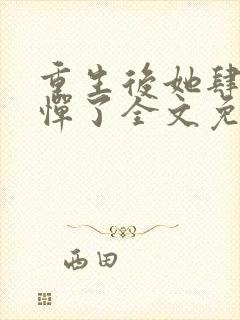 重生後她肆
憚了全文免
西田